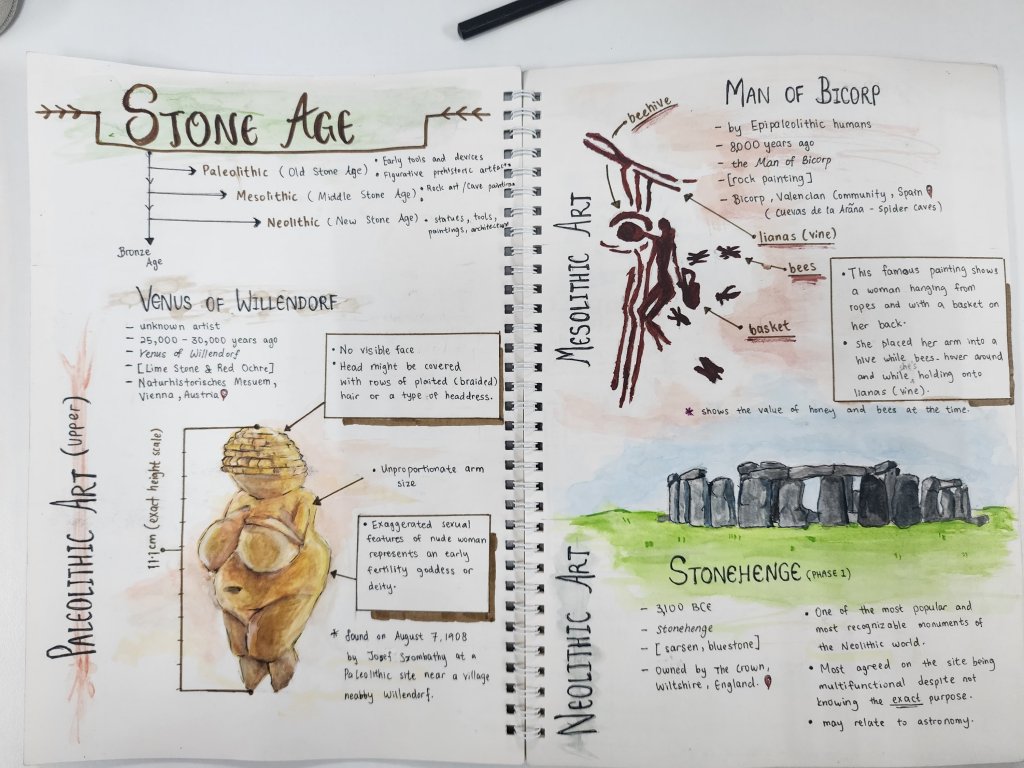 STONE AGE
Paleolithic (Old Stone Age)
• Early tools and devices
• Figurative prehistoric artifacts
Mesolithic (Middle Stone Age)
• Rock art / Cave paintings
Neolithic (New Stone Age)
• statues, tools,
paintings, architecture
Bronze
Age
PALEOLITHIC ART (UPPER)
VENUS OF WILLENDORF
- unknown artist
- 25,000 - 30,000 years ago
- Venus of Willendorf
- [Lime Stone & Red Ochre]
- Naturhistorisches Mesuem,
Vienna, Austria
• No visible face
• Head might be covered
with rows of plaited (braided)
hair or a type of headdress.
11.1 cm (exact height scale)
• Unproportionate arm
size
• Exaggerated sexual
features of nude woman
represents an early
fertility goddess or
deity.
* found on August 7, 1908
by Josef Szombathy at a
Paleolithic site near a village
neabby Willendorf.
MESOLITHIC ART
MAN OF BICORP
- by Epipaleolithic humans
- 8,000 years ago
- the Man of Bicorp
- [rock painting]
- Bicorp, Valencian Community, Spain
(Cuevas de la Araña - Spider caves)
beehive
lianas (vine)
bees
basket
• This famous painting shows
a woman hanging from
ropes and with a basket on
her back.
• She placed her arm into a
hive while bees hover around
and while she's holding onto
lianas (vine).
* shows the value of honey and bees at the time.
NEOLITHIC ART
STONEHENGE (PHASE 1)
- 3,100 BCE
- Stonehenge
- [sarsen, bluestone]
- Owned by The Crown,
Wiltshire, England.
• One of the most popular and
most recognizable monuments of
the Neolithic world.
• Most agreed on the site being
multifunctional despite not
knowing the exact purpose.
• may relate to astronomy.